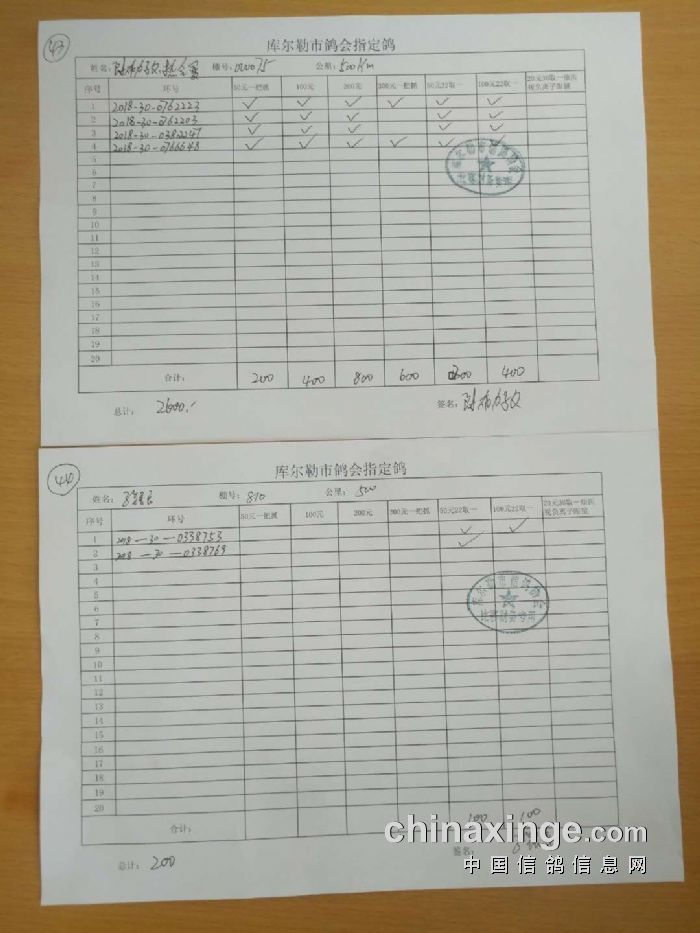 47
库尔勒市鸽会指定鸽
姓名: 棚号: 000075 公里: 500Km
序号 环号 50元一把抓 100元 200元 300元一把抓 50元22取一 100元22取一
1 2018-30-0762223 ✓ ✓ ✓ ✓ ✓ ✓
2 2018-30-0762203 ✓ ✓ ✓ ✓ ✓
3 2018-30-0382247 ✓ ✓ ✓ ✓ ✓
4 2018-30-0766648 ✓ ✓ ✓ ✓ ✓ ✓
5
6
7
8
9
10
11
12
13
14
15
16
17
18
19
20
合计: 200 400 800 600 400
总计: 2600.- 签名:
库尔勒市信鸽协会
库尔勒市鸽会指定鸽
姓名: 棚号: 810 公里: 500
序号 环号 50元一把抓 100元 200元 300元一把抓 50元22取一 100元22取一
1 2018-30-0338753 ✓ ✓
2 2018-30-0338769 ✓
3
4
5
6
7
8
9
10
11
12
13
14
15
16
17
18
19
20
合计: 100 100
总计: 200 签名:
库尔勒市信鸽协会
chinaxinge.com
中国信鸽信息网